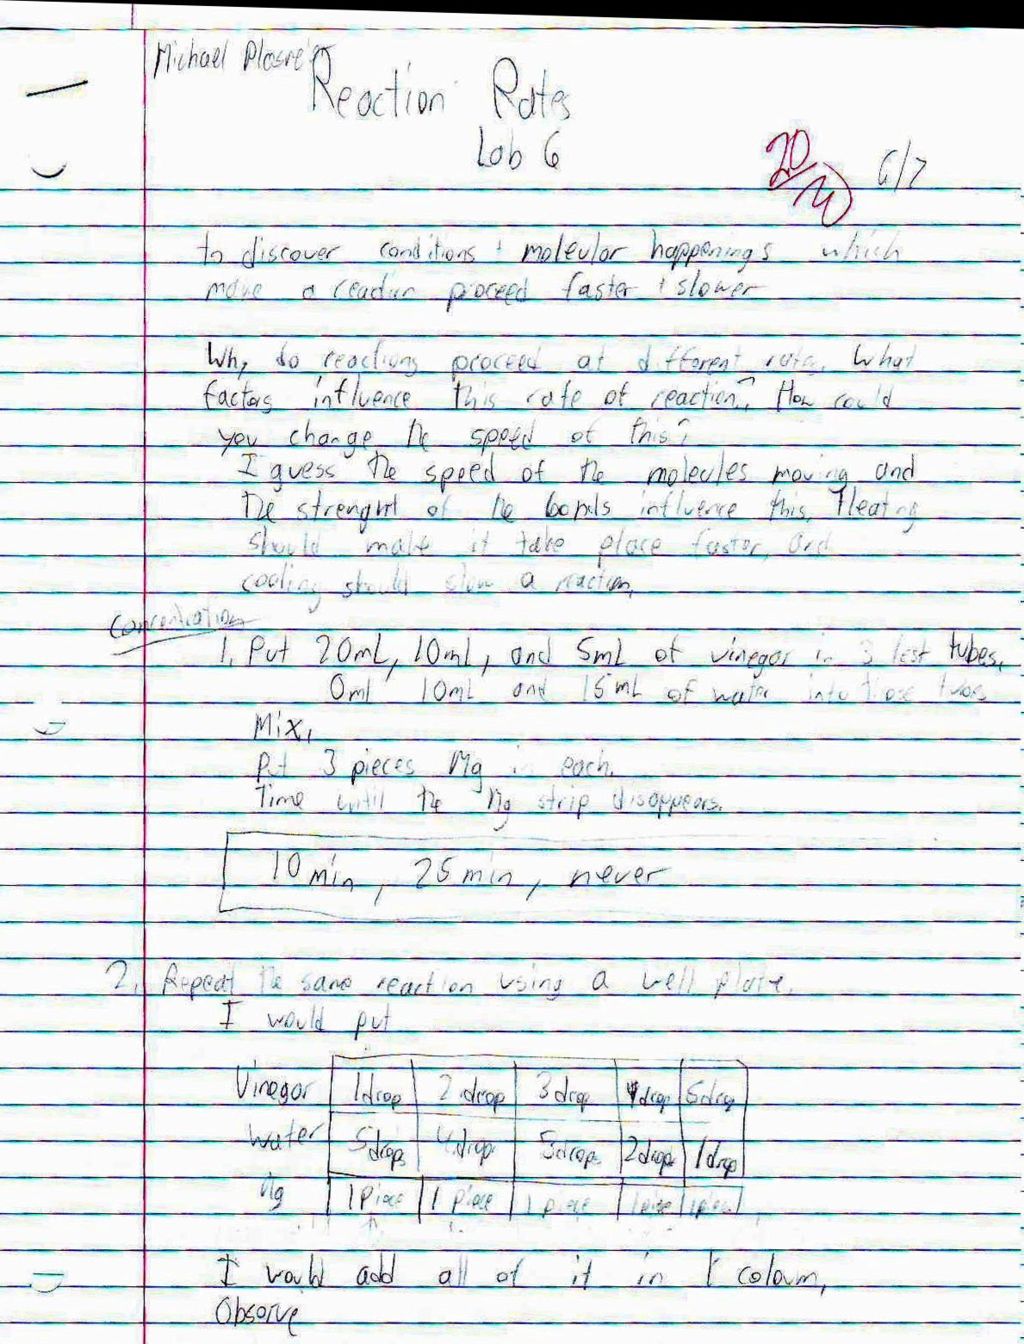 Michael
Reaction Rates
Lab 6
20/20 6/7
to discover conditions + moleculor happenings which
make a reaction proceed faster + slower
Why do reactions proceed at different rates. What
factors influence this rate of reaction? How could
you change the speed of this?
I guess the speed of the molecules moving and
the strenght of the bonds influence this. Heating
should make it take place faster, and
cooling should slow a reaction.
Concentration
1. Put 20mL, 10mL, and 5mL of vinegar in 3 test tubes.
0ml 10mL and 15mL of water into those tubes
Mix.
Put 3 pieces Mg in each.
Time until the Mg strip disappears.
10 min, 25 min, never
2. Repeat the same reaction using a well plate.
I would put
Vinegar 1drop 2 drop 3 drop 4drop 5drop
Water 5drops 4drop 3drops 2drops 1drop
Mg 1 piece 1 piece 1 piece 1 piece 1 piece
I would add all of it in 1 coloum,
Observe